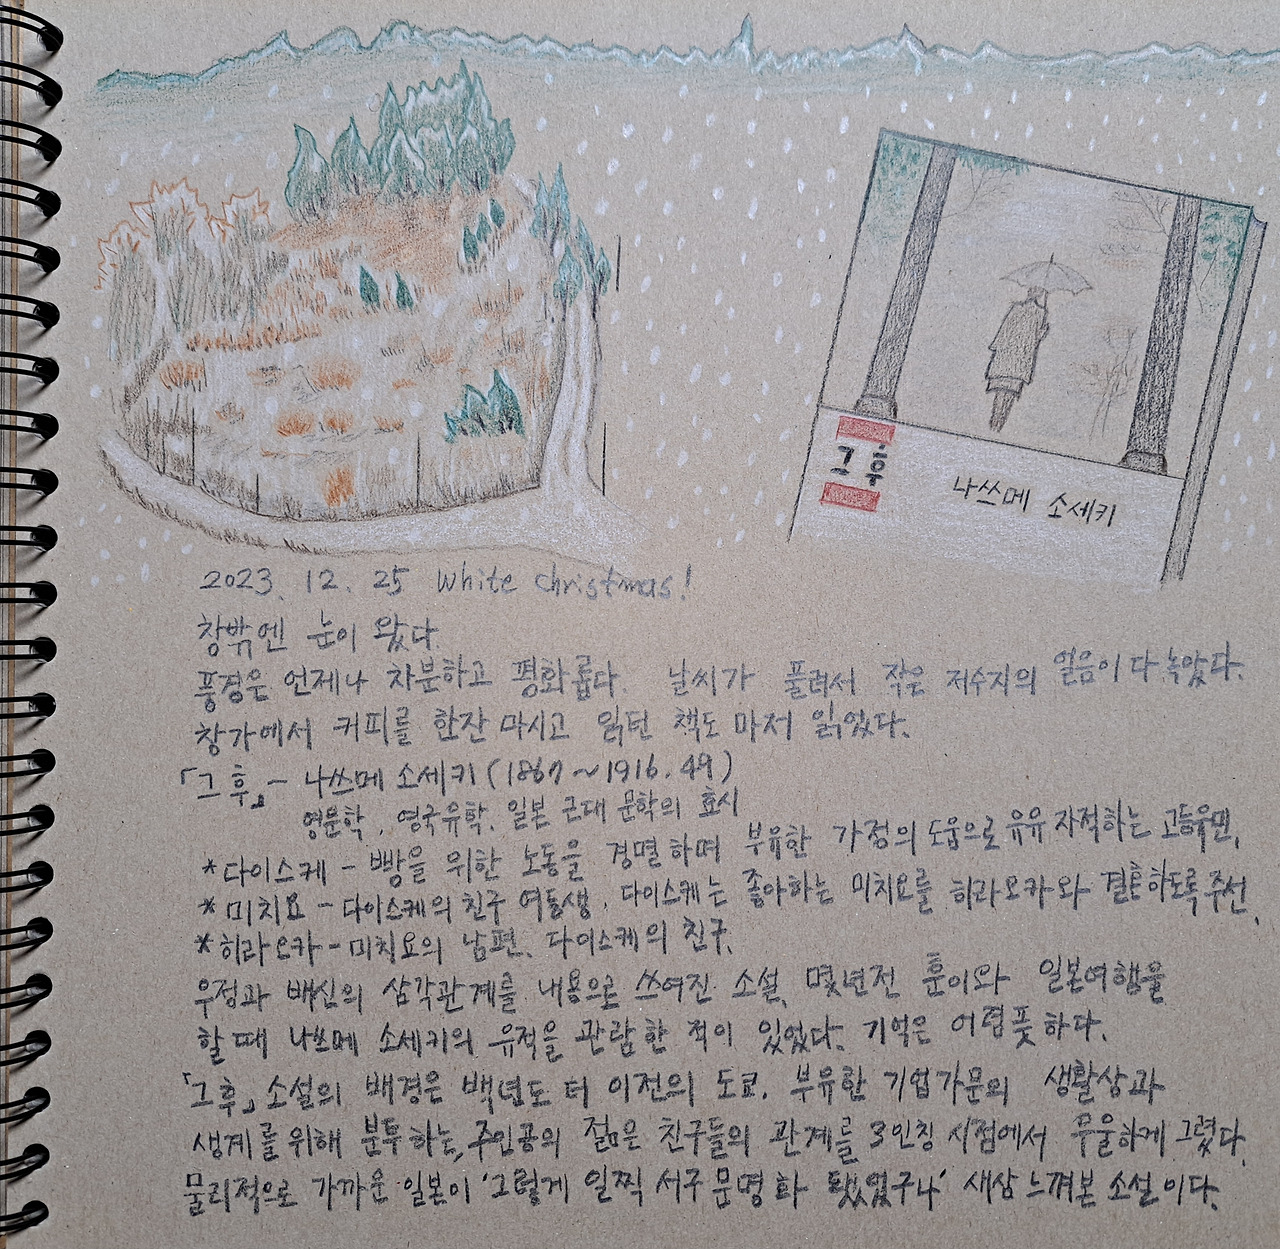 그 후
나쓰메 소세키
2023. 12. 25 White christmas!
창밖엔 눈이 왔다.
풍경은 언제나 차분하고 평화롭다. 날씨가 풀려서 작은 저수지의 얼음이 다 녹았다.
창가에서 커피를 한잔 마시고 읽던 책도 마저 읽었다.
「그 후」 - 나쓰메 소세키 (1867~1916. 49)
영문학, 영국유학. 일본 근대 문학의 효시
*다이스케 - 빵을 위한 노동을 경멸하며 부유한 가정의 도움으로 유유 자적하는 고등유민.
*미치요 - 다이스케의 친구 여동생. 다이스케는 좋아하는 미치요를 히라오카와 결혼하도록 주선.
*히라오카 - 미치요의 남편. 다이스케의 친구.
우정과 배신의 삼각관계를 내용으로 쓰여진 소설. 몇년전 훈이와 일본여행을
할 때 나쓰메 소세키의 유적을 관람한 적이 있었다. 기억은 어렴풋하다.
「그후」 소설의 배경은 백년도 더 이전의 도쿄. 부유한 기업가문의 생활상과
생계를 위해 분투하는, 주인공의 젊은 친구들의 관계를 3인칭 시점에서 우울하게 그렸다.
물리적으로 가까운 일본이 '그렇게 일찍 서구 문명화 됐었구나' 새삼 느껴본 소설이다.